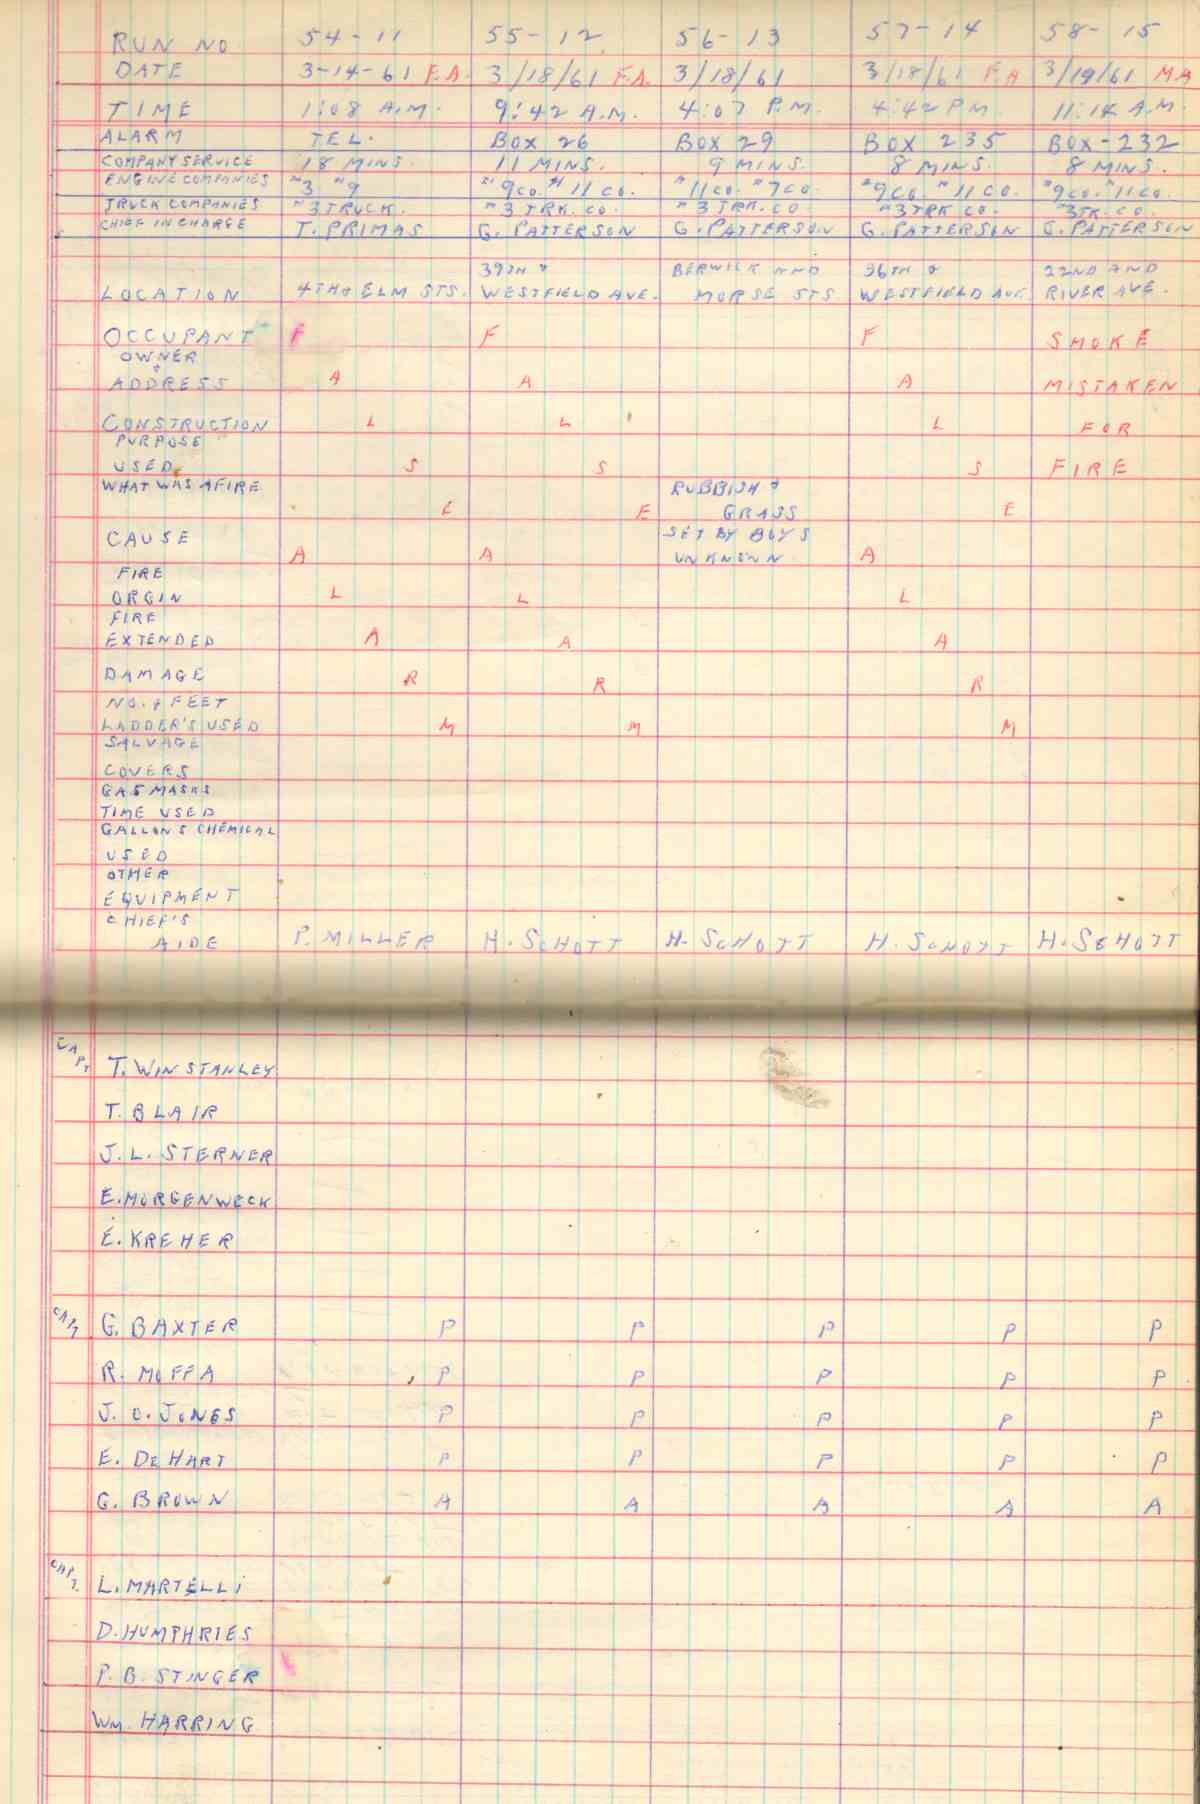 RUN NO. 54-11 55-12 56-13 57-14 58-15
DATE 3-14-61 F.A. 3/18/61 F.A. 3/18/61 3/18/61 F.A 3/19/61 MA
TIME 1:08 A.M. 9:42 A.M. 4:07 P.M. 4:42 PM. 11:14 A.M.
ALARM TEL. BOX 26 BOX 29 BOX 235 BOX-232
COMPANY SERVICE 18 MINS. 11 MINS. 9 MINS. 8 MINS. 8 MINS.
ENGINE COMPANIES "3 "9 "9CO. "11 CO. "11CO. "7CO. "9CO "11 CO. "9CO. "11CO.
TRUCK COMPANIES "3 TRUCK. "3 TRK. CO. "3 TRK. CO "3 TRK CO. "3TK. CO.
CHIEF IN CHARGE T. PRIMAS G. PATTERSON G. PATTERSON G. PATTERSON G. PATTERSON
39TH & BERWICK AND 36TH & 22ND AND
LOCATION 4TH & ELM STS. WESTFIELD AVE. MORSE STS WESTFIELD AVE. RIVER AVE.
OCCUPANT F F F SMOKE
OWNER
&
ADDRESS A A A MISTAKEN
CONSTRUCTION L L L FOR
PURPOSE
USED S S S FIRE
WHAT WAS AFIRE RUBBISH &
E E GRASS E
CAUSE SET BY BOYS
A A UNKNOWN. A
FIRE
ORGIN L L L
FIRE
EXTENDED A A A
DAMAGE R R R
NO. & FEET
LADDER'S USED M M M
SALVAGE
COVERS
GAS MASKS
TIME USED
GALLONS CHEMICAL
USED
OTHER
EQUIPMENT
CHIEF'S
AIDE P. MILLER H. SCHOTT H. SCHOTT H. SCHOTT H. SCHOTT
CAPT T. WINSTANLEY
T. BLAIR
J. L. STERNER
E. MORGENWECK
E. KREHER
CAPT G. BAXTER P P P P P
R. MOFFA P P P P P
J. O. JONES P P P P P
E. DEHART P P P P P
G. BROWN A A A A A
CAPT. L. MARTELLI
D. HUMPHRIES
P. B. STINGER
WM. HARRING